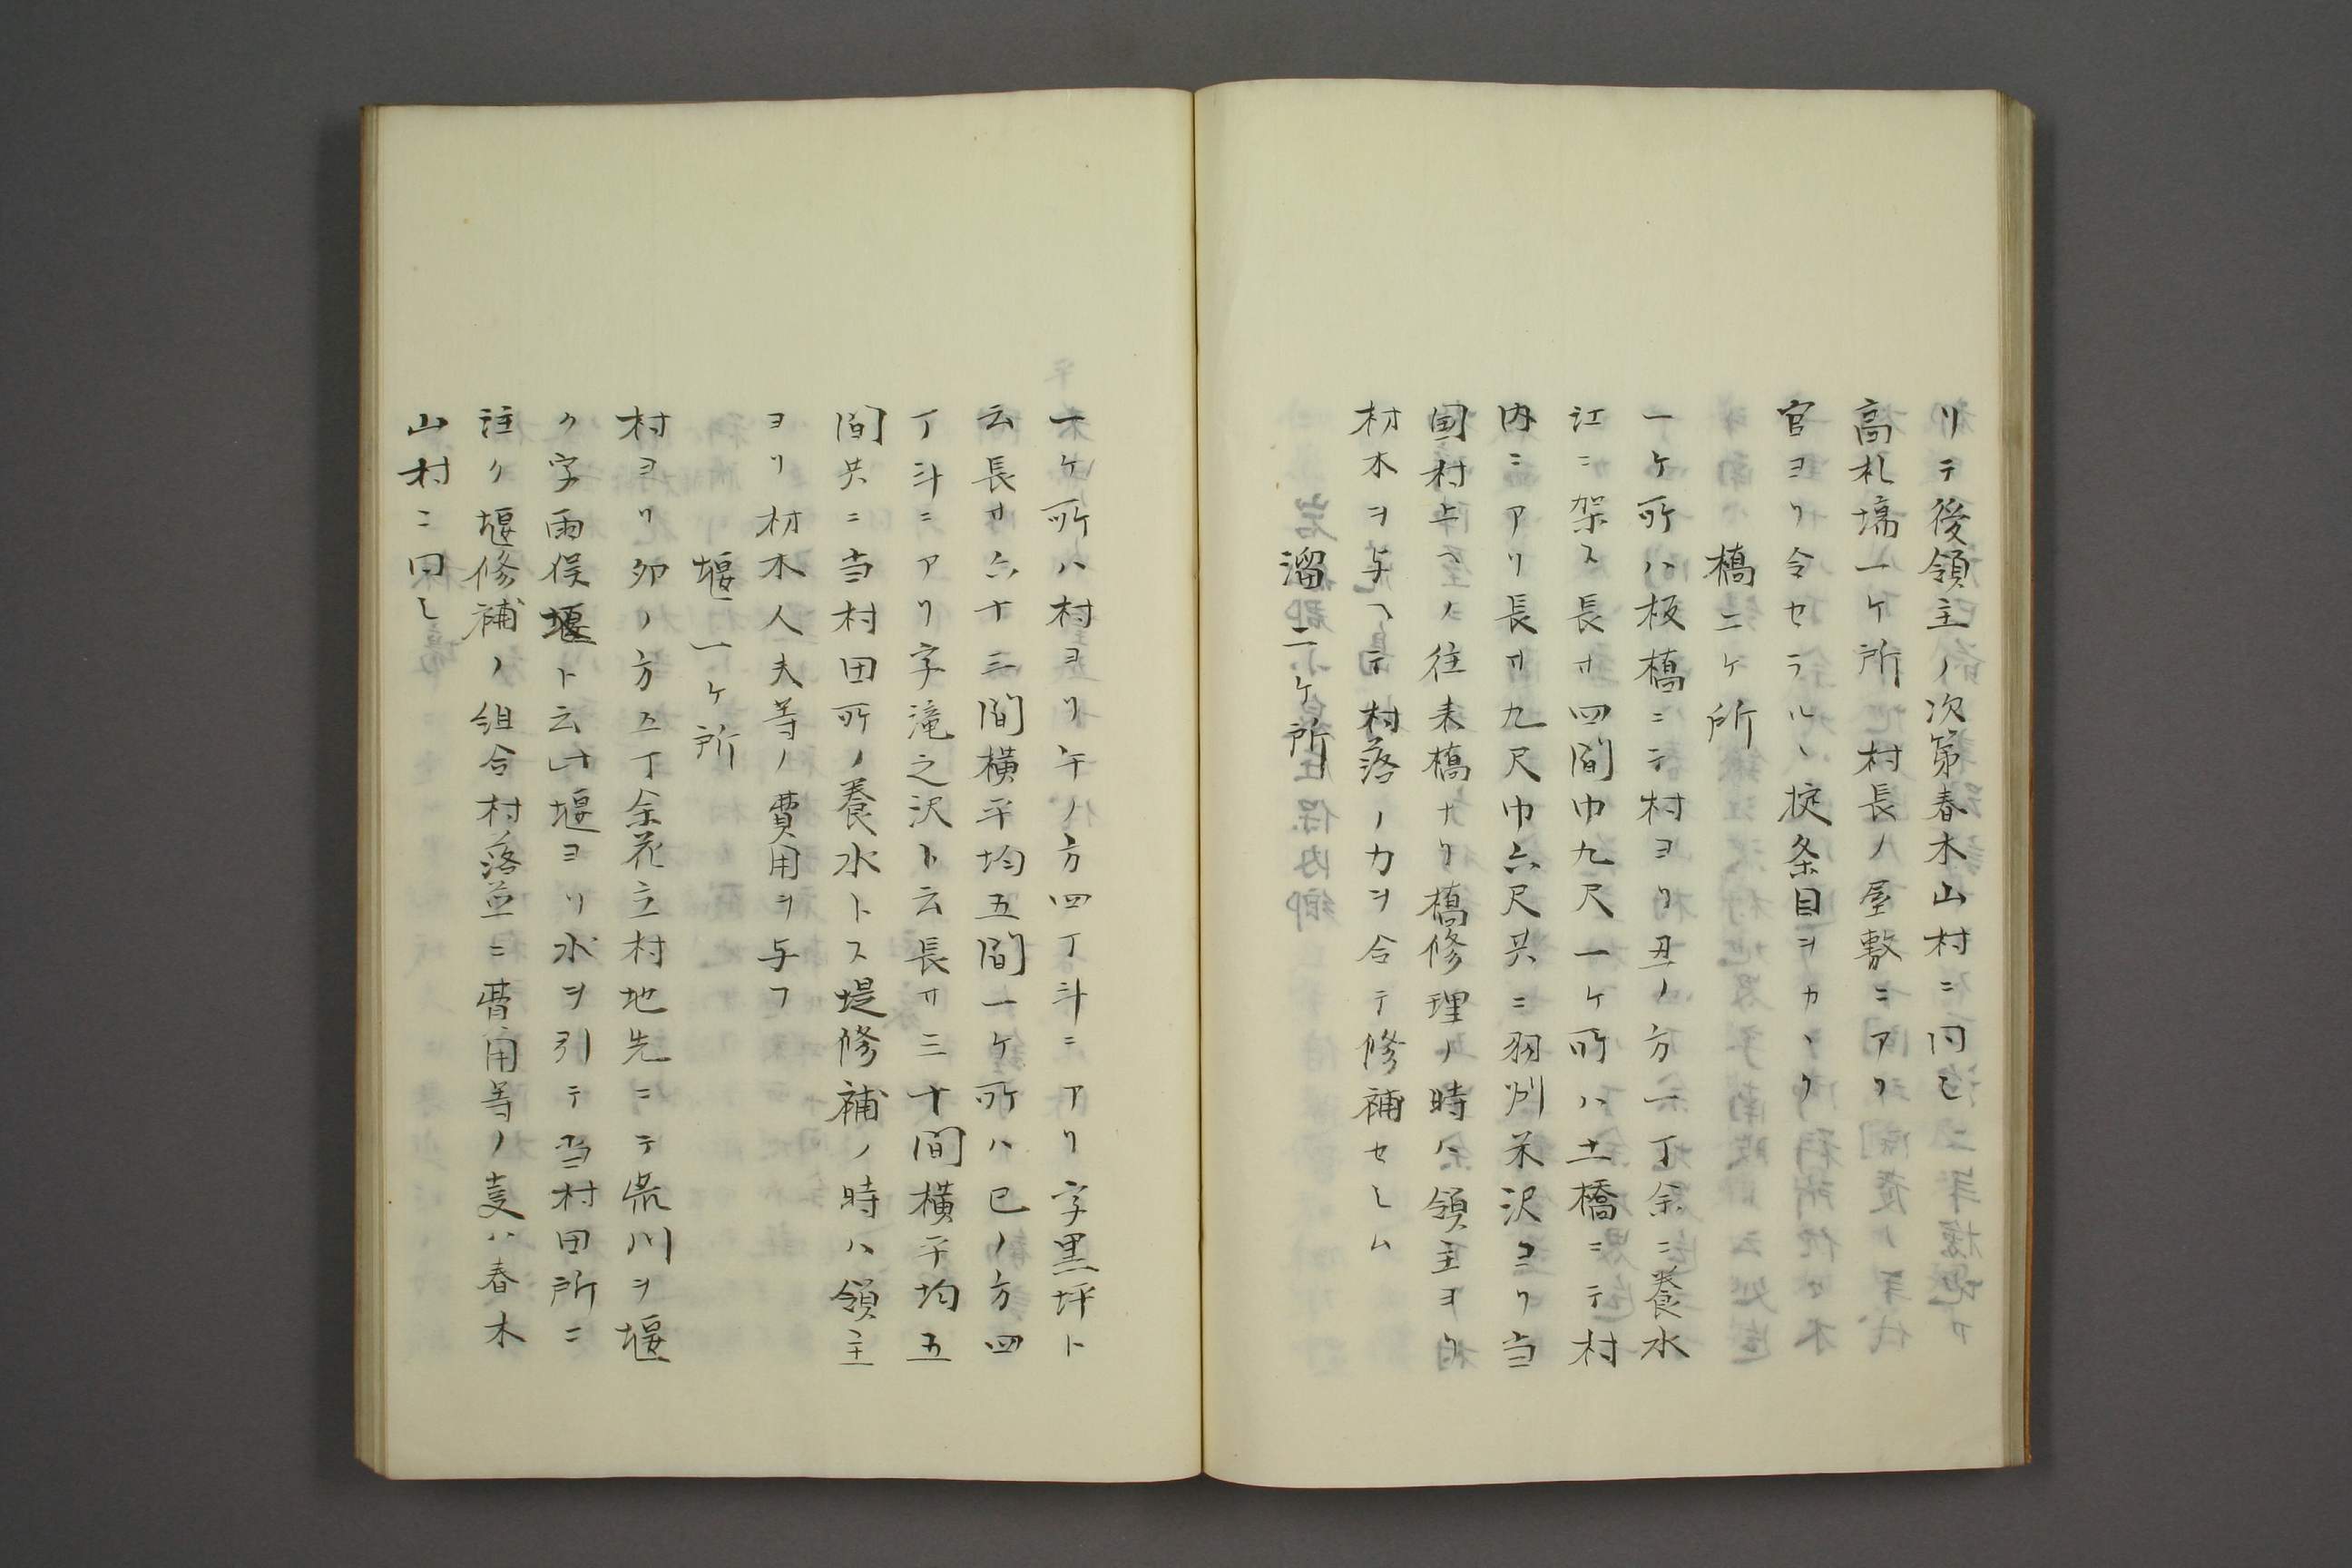 リテ後領主ノ次第春木山村ニ同シ
高札場一ケ所村長ノ屋敷ニアリ
官ヨリ令セラルヽ掟条目ヲカヽク
橋二ケ所
一ケ所ハ板橋ニテ村ヨリ丑ノ方一丁余ニ養水
江ニ架ス長サ四間巾九尺一ケ所ハ土橋ニテ村
内ニアリ長サ九尺巾六尺共ニ羽州米沢ヨリ当
国村上ヘノ往来橋ナリ橋修理ノ時ハ領主ヨリ
材木ヲ与ヘテ村落ノ力ヲ合テ修補セシム
溜二ケ所
一ケ所ハ村ヨリ午ノ方四丁斗ニアリ字黒坪ト
云長サ六十三間横平均五間一ケ所ハ巳ノ方四
丁斗ニアリ字滝之沢ト云長サ三十間横平均五
間共ニ当村田所ノ養水トス堤修補ノ時ハ領主
ヨリ材木人夫等ノ費用ヲ与フ
堰一ケ所
村ヨリ卯ノ方五丁余花立村地先ニテ荒川ヲ堰
ク字雨俣堰ト云此堰ヨリ水ヲ引テ当村田所ニ
注ク堰修補ノ組合村落並ニ費用等ノ㕝ハ春木
山村ニ同シ